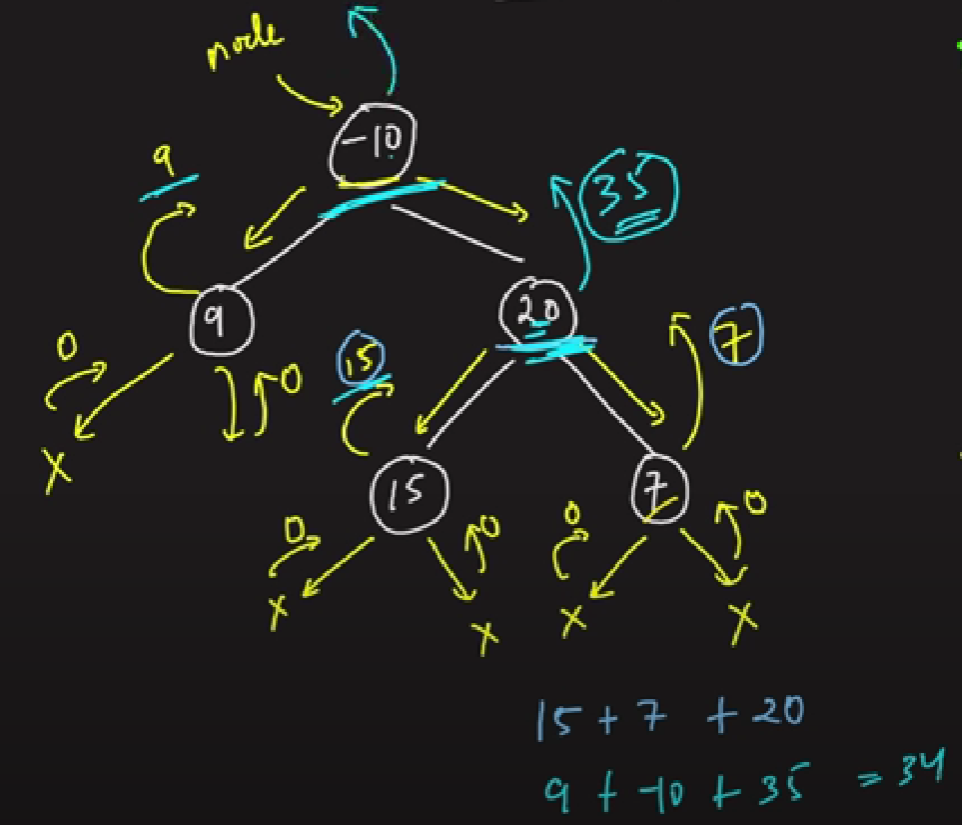 node
-10
9
35
9
20
0
0
15
7
15
7
0
0
0
0
X
X
X
X
X
15 + 7 + 20
9 + -10 + 35 = 34